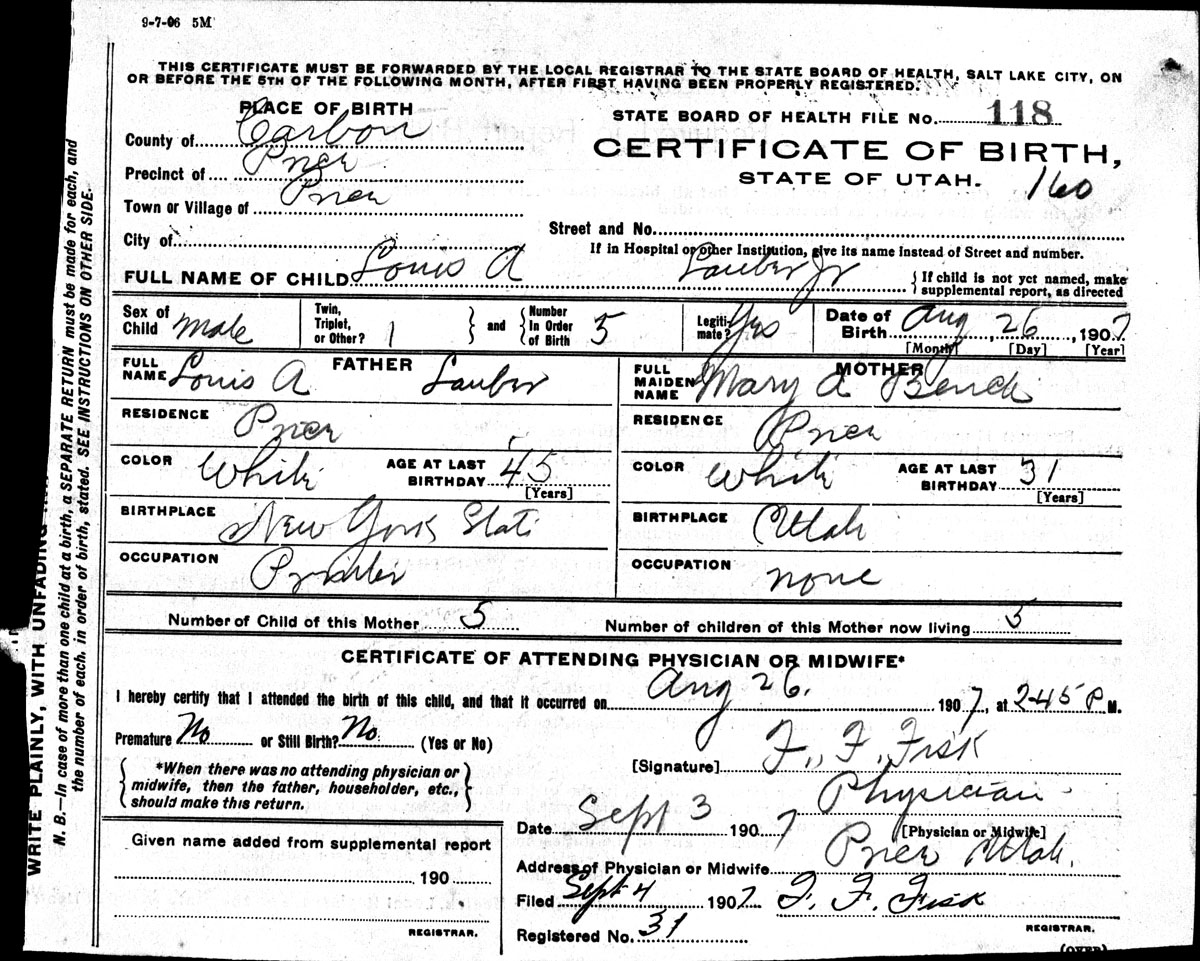 9-7-06 5M
THIS CERTIFICATE MUST BE FORWARDED BY THE LOCAL REGISTRAR TO THE STATE BOARD OF HEALTH, SALT LAKE CITY, ON
OR BEFORE THE 5TH OF THE FOLLOWING MONTH, AFTER FIRST HAVING BEEN PROPERLY REGISTERED.
PLACE OF BIRTH
County of Carbon
Precinct of Price
Town or Village of Price
City of
STATE BOARD OF HEALTH FILE No. 118
CERTIFICATE OF BIRTH,
STATE OF UTAH. 160
Street and No.
If in Hospital or other Institution, give its name instead of Street and number.
FULL NAME OF CHILD Louis A Lauber Jr { If child is not yet named, make
supplemental report, as directed
Sex of Child Male
Twin, Triplet, or Other? 1 } and { Number In Order of Birth 5
Legitimate? Yes
Date of Birth Aug 26, 1907
[Month] [Day] [Year]
FATHER
FULL NAME Louis A Lauber
RESIDENCE Price
COLOR White AGE AT LAST BIRTHDAY 45
[Years]
BIRTHPLACE New York State
OCCUPATION Printer
MOTHER
FULL MAIDEN NAME Mary A Bench
RESIDENCE Price
COLOR White AGE AT LAST BIRTHDAY 31
[Years]
BIRTHPLACE Utah
OCCUPATION none
Number of Child of this Mother 5 Number of children of this Mother now living 5
CERTIFICATE OF ATTENDING PHYSICIAN OR MIDWIFE*
I hereby certify that I attended the birth of this child, and that it occurred on Aug 26. 1907, at 2 45 P M.
Premature No or Still Birth? No. (Yes or No)
*When there was no attending physician or
midwife, then the father, householder, etc.,
should make this return.
[Signature] F. F. Fisk
Physician
[Physician or Midwife]
Date Sept 3 1907
Address of Physician or Midwife Price Utah.
Filed Sept 4 1907 F. F. Fisk
REGISTRAR.
Registered No. 31
(OVER)
Given name added from supplemental report
190
REGISTRAR.
WRITE PLAINLY, WITH UNFADING
N. B.—In case of more than one child at a birth, a SEPARATE RETURN must be made for each, and
the number of each, in order of birth, stated. SEE INSTRUCTIONS ON OTHER SIDE.